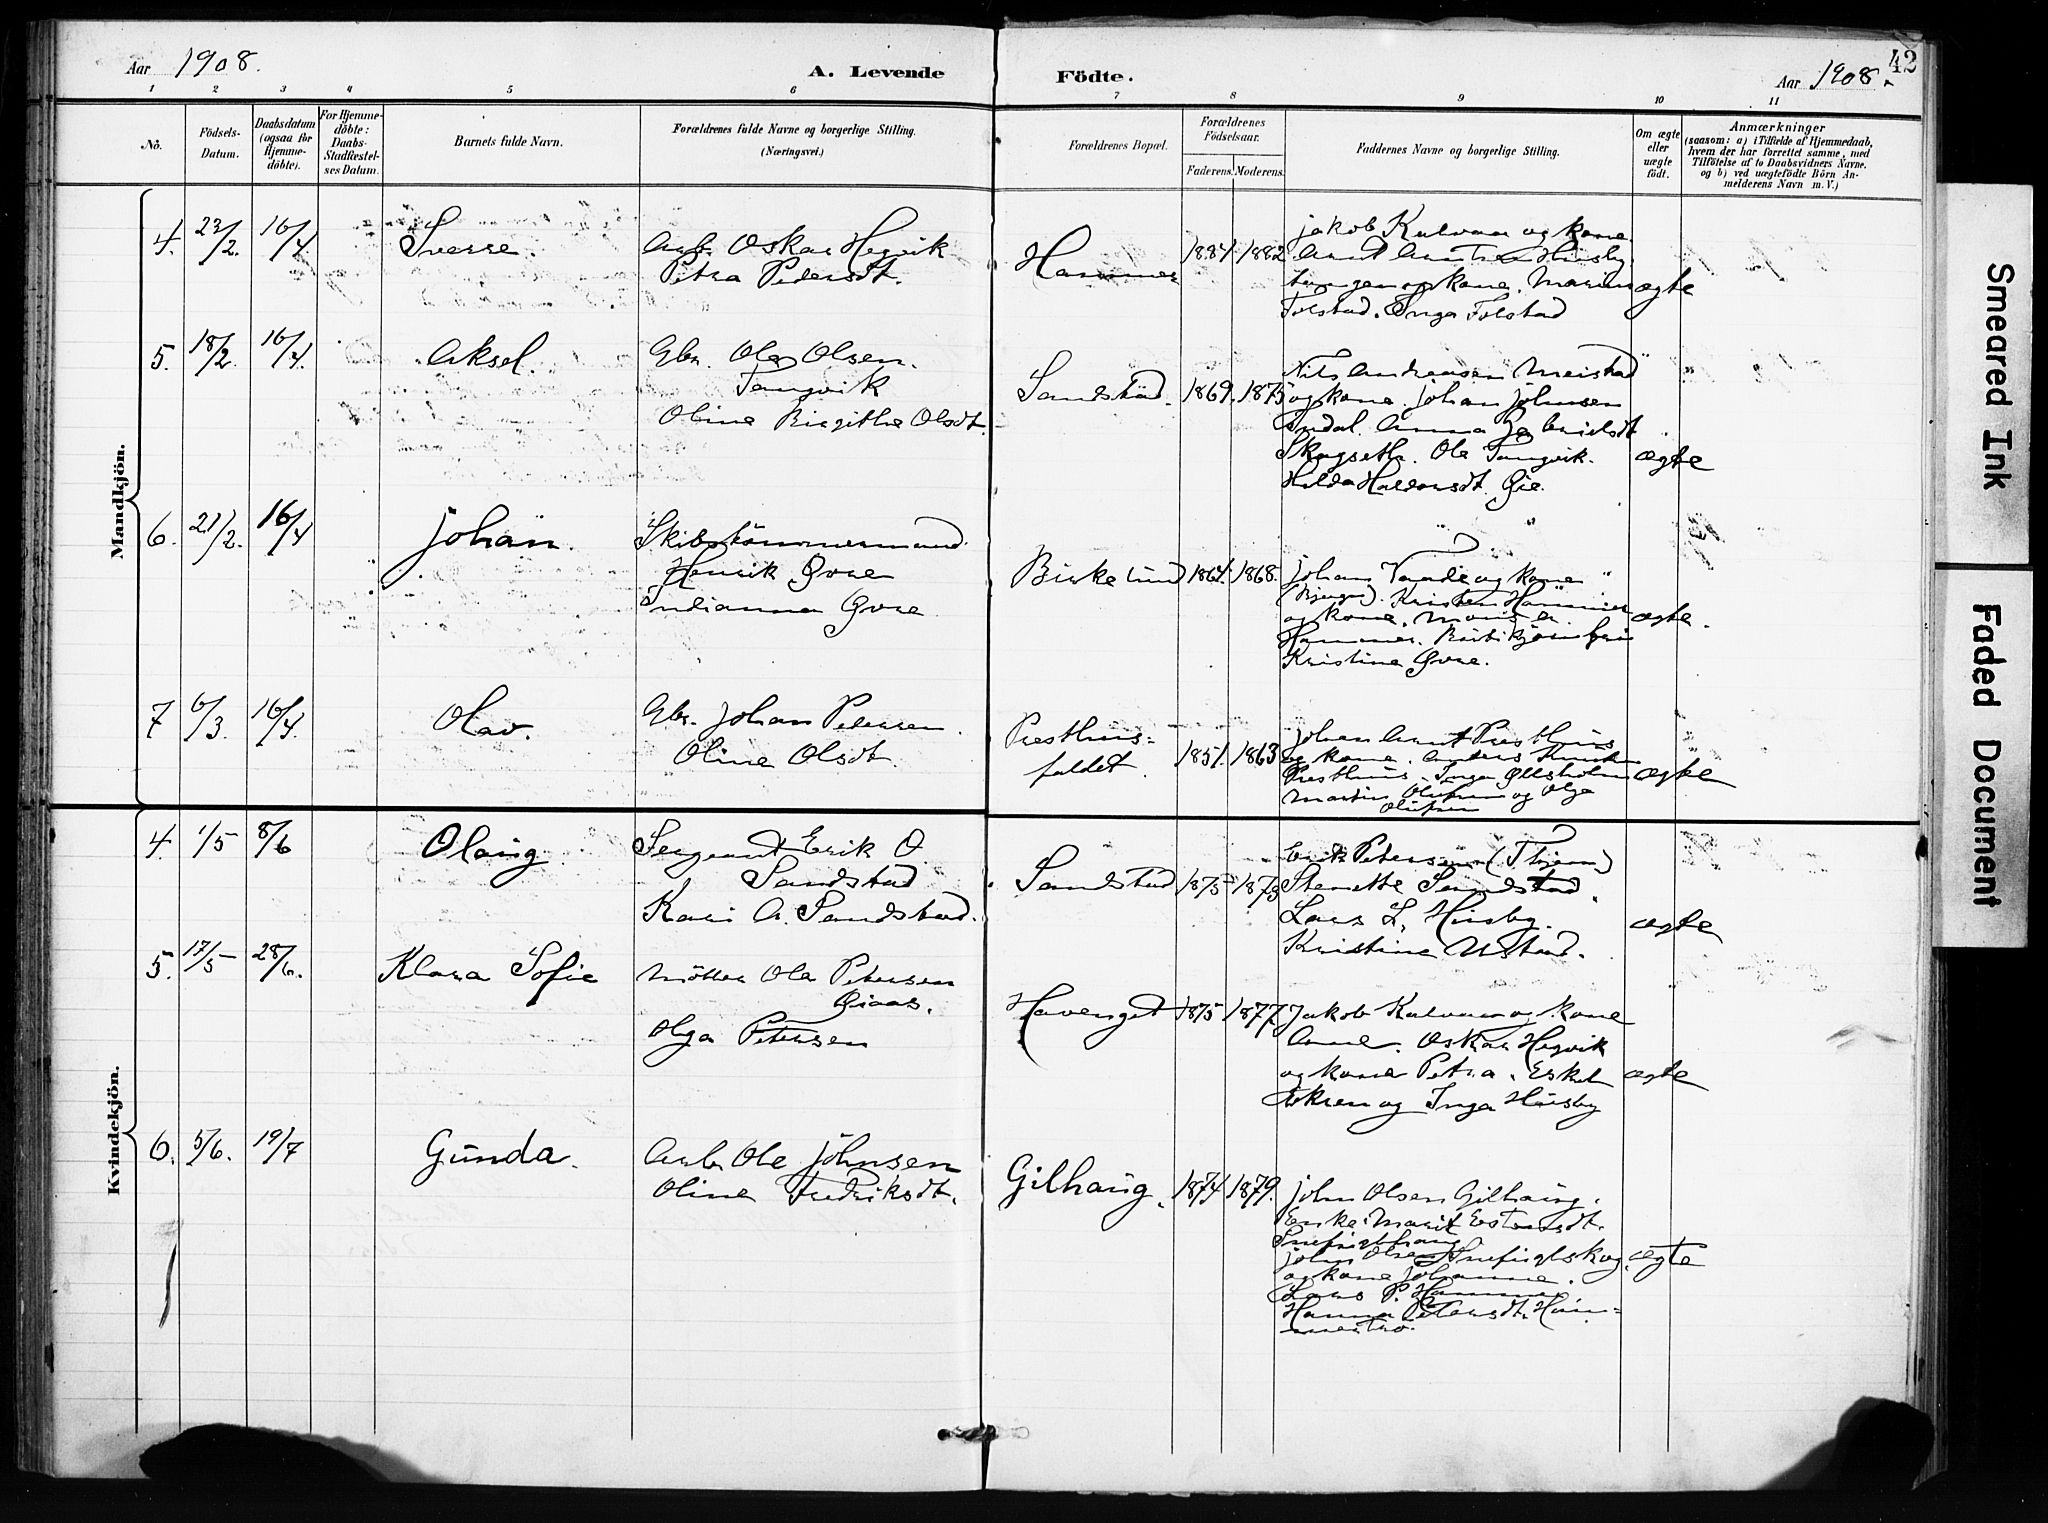 Aar 1908.
A. Levende
Födte.
Aar 1908.
42
1 2 3 4 5 6 7 8 9 10 11
No.
Födsels-
Datum.
Daabsdatum
(ogsaa for
Hjemme-
döbte).
For Hjemme-
döbte:
Daabs-
Stadfæstel-
ses Datum.
Barnets fulde Navn.
Forældrenes fulde Navne og borgerlige Stilling.
(Næringsvei.)
Forældrenes Bopæl.
Forældrenes
Födselsaar.
Faderens. Moderens.
Faddernes Navne og borgerlige Stilling.
Om ægte
eller
uægte
födt.
Anmærkninger
(saasom: a) i Tilfælde af Hjemmedaab,
hvem der har forrettet samme, med
Tilföielse af to Daabsvidners Navne.
og b) ved uægtefödte Börn An-
melderens Navn m. V.)
Mandkjön.
4. 23/2. 16/4 Sverre.
Arb. Oskar Hegvik
Petra Pedersdt.
Hammer 1884 1882
Jakob Kulvaa og kone.
Arnt Hinsby
og kone.
Tolstad. Inga Tolstad
ægte
5. 18/2. 16/4. Aksel.
Gbr. Ole Olsen
Tangvik
Oline Birgithe Olsdt.
Sandstad. 1869. 1875
Nils Andreasen Meistad
og kone. Johan Johnsen
Anna
Skogseth. Ole Tangvik.
Hilda
ægte
6. 21/2. 16/4 Johan.
Skibstömmermand
Henrik Gvre
Indianna Gvre
Birkelund 1864. 1868.
Johan og kone
Kristen Hammer
og kone.
Hammer.
Kristine Gvre.
ægte.
7 6/3. 16/4. Olav.
Gbr. Johan Petersen
Oline Olsdt.
Presthus-
faldet. 1851. 1863
Johan Arnt Presthus
og kone. Anders
Presthus. Inga
Martin Olufsen og Olga
Olufsen
ægte
Kvindekjön.
4. 1/5 8/6 Olaug
Sergeant Erik O.
Sandstad
Kari A. Sandstad.
Sandstad 1875 1873
Erik Petersen
Sandstad
Lars L. Hinsby.
Kristine Ustad.
ægte
5. 17/5 28/6. Klara Sofie
Möller Ole Petersen
Olga Petersen
Havenget 1875 1877
Jakob Kulvaa og kone
Anne. Oskar Hegvik
og kone Petra.
og Inga Hinsby
ægte
6. 5/6. 19/7 Gunda.
Arb. Ole Johnsen
Oline Fredriksdt.
Gilhaug. 1874 1879.
John Olsen Gilhaug.
Enke Marit
John Olsen
og kone Johanne.
Lars P. Hammer
Hanna Petersdt.
ægte
Smeared Ink
Faded Document